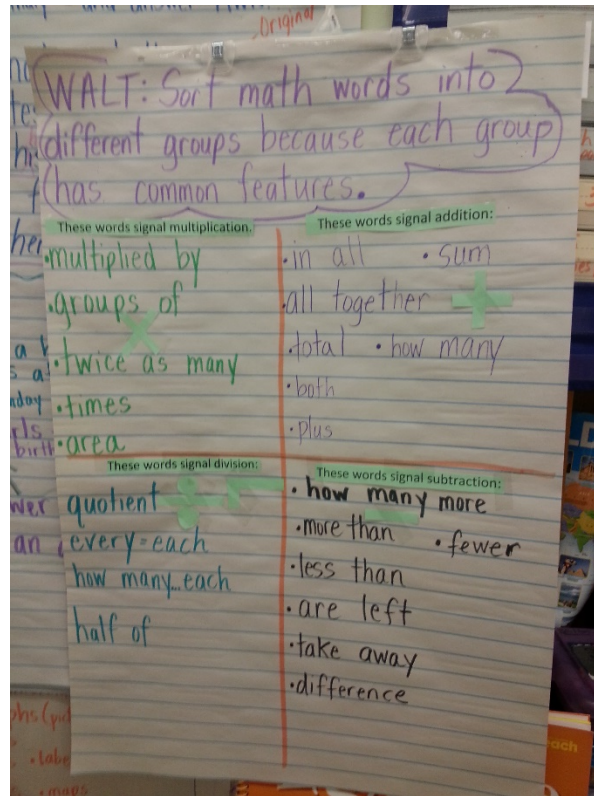 Original
WALT: Sort math words into
different groups because each group
has common features.
These words signal multiplication.
•multiplied by
•groups of
•twice as many
•times
•area
These words signal addition:
•in all •sum
•all together
•total •how many
•both
•plus
These words signal division:
quotient
every=each
how many...each
half of
These words signal subtraction:
•how many more
•more than •fewer
•less than
•are left
•take away
•difference